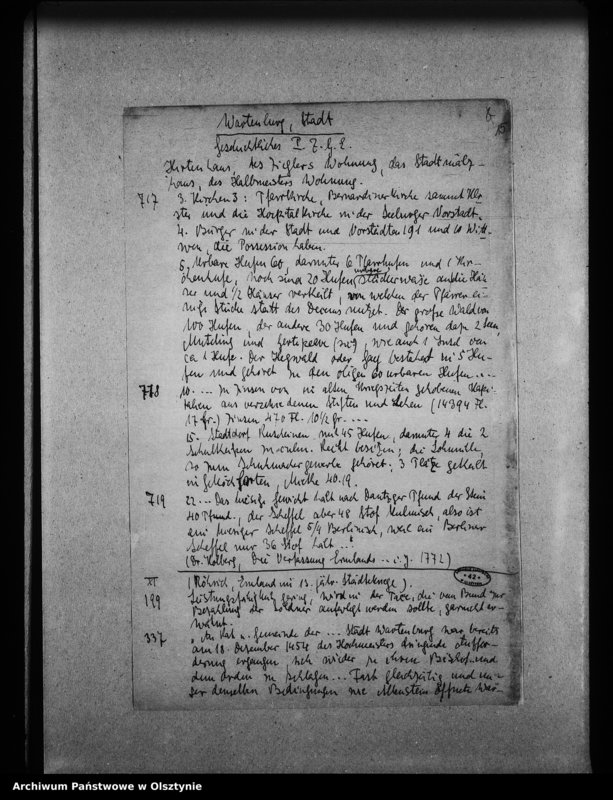 Wartenburg, Stadt
Geschichtliches Z. G. E.
Hirtenhaus, des Zieglers Wohnung, das Stadtmälz-
haus, des Halbmeisters Wohnung.
717 3. Kirchen 3: Pfarrkirche, Bernardinerkirche sammt Klo-
ster und die Hospitalkirche in der Seeburger Vorstadt.
4. Bürger in der Stadt und Vorstädten 191 und 10 Witt-
wen, die Possession haben.
6. Urbare Hufen 60, darunter 6 Pfarrhufen und 1
noch sind 20 Hufen an die Häu-
ser und 1/2 Häuser vertheilt, von welchen der Pfarrer ei-
nige Stücke statt des Decems nutzet. Der große Wald von
100 Hufen, der andere 30 Hufen und gehören dazu 2 Seen,
und wie auch 1 Insel von
ca 1 Hufe. Der Hegwald oder bestehet in 5 Hu-
fen und gehöret zu den obigen 60 urbaren Hufen....
718 10. .... In Zinsen von in alten Kriegszeiten gehobenen Kapi-
talien aus verschiedenen Stiften und Lehen (14394 Fl.
17 gr.) Zinsen 470 Fl. 10 1/2 gr. ....
15. Stadtdorf mit 45 Hufen, darunter 4 die 2
Schultheißen zu culm. Recht besitzen; die Lohmühle,
so zum Schuhmachergewerke gehöret. 3 Plätze
Garten, Miethe 40.19.
719 22... Das hiesige Gewicht hält nach Dantziger Pfund der Stein
40 Pfund., der Scheffel aber 48 Stof Kulmisch, also ist
ein hiesiger Scheffel 5/4 Berlinisch, weil ein Berliner
Scheffel nur 36 Stof hält...
(Dr. Kolberg, Die Verfassung Ermlands... i. J. 1772)
42
XI (Röhrich, Ermland im 13. jähr. Städtekriege).
199 Leistungsfähigkeit gering, wird in der Taxe, die vom Bund zur
Bezahlung der Söldner auferlegt werden sollte, garnicht er-
wähnt.
337 "An Rat u. Gemeinde der ... Stadt Wartenburg war bereits
am 18. Dezember 1454 des Hochmeisters dringende Auffor-
derung ergangen, sich wieder zu ihrem Bischof und
dem Orden zu schlagen... Fast gleichzeitig und un-
ter denselben Bedingungen wie Allenstein öffnete War-
Archiwum Państwowe w Olsztynie